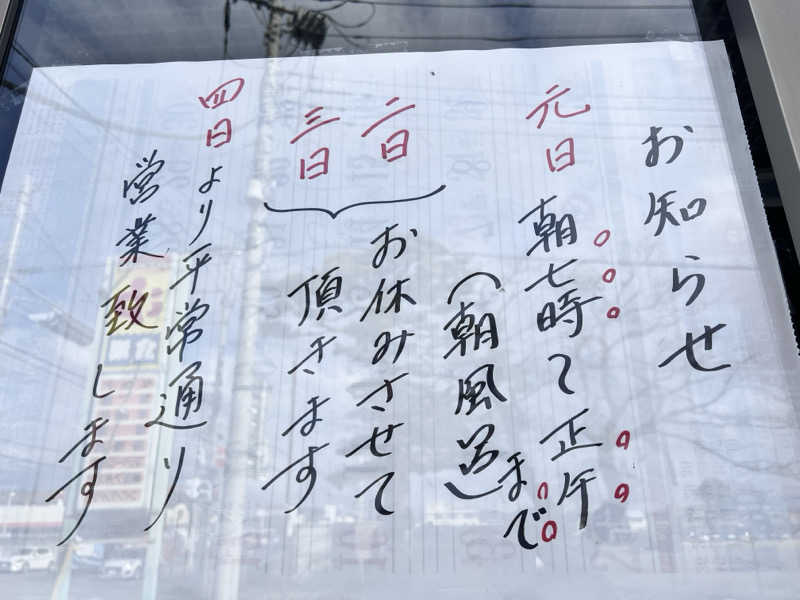 お知らせ
元日 朝七時〜正午まで
(朝風呂)
二日
三日
お休みさせて
頂きます
四日より平常通り
営業致します